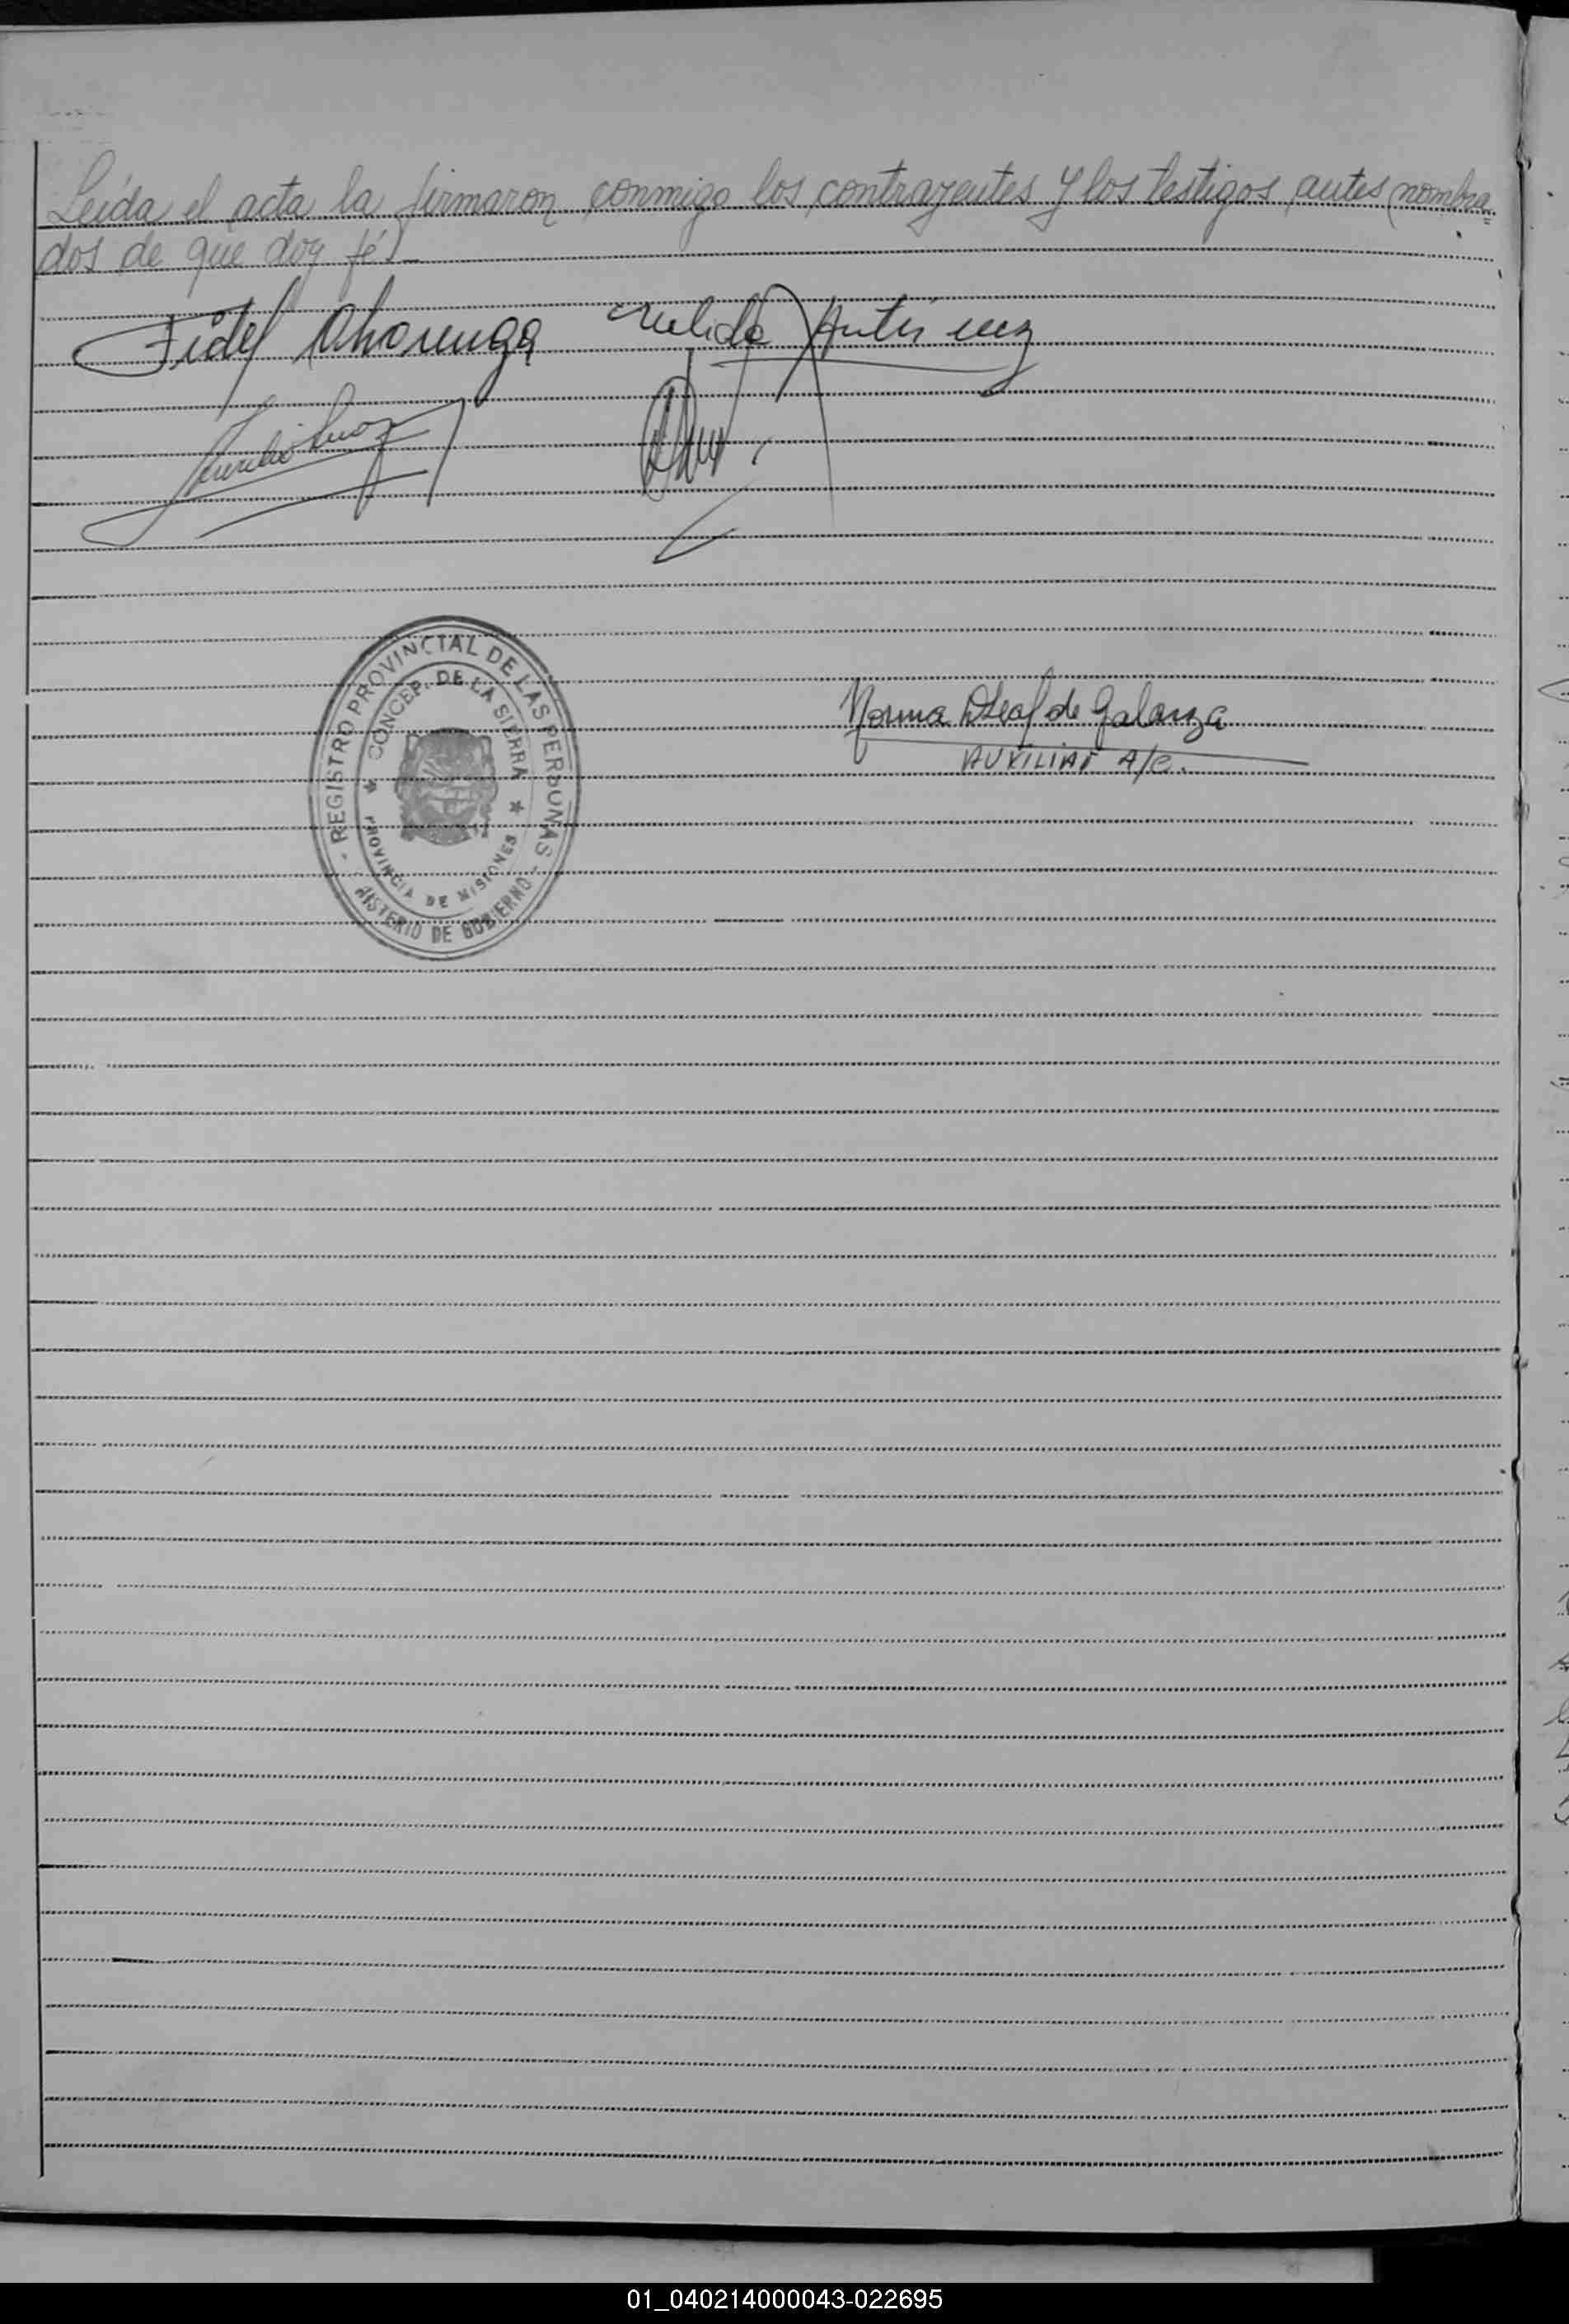 Leída el acta la firmaron conmigo los contrayentes y los testigos antes nombra=
dos de que doy fé.-
Fidel
REGISTRO PROVINCIAL DE LAS PERSONAS
CONCEP. DE LA SIERRA
PROVINCIA DE MISIONES
NISTERIO DE GOBIERNO
Norma de Galarza
AUXILIAR A/C.
01_040214000043-022695